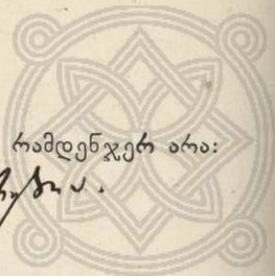 რამდენჯერ არა: